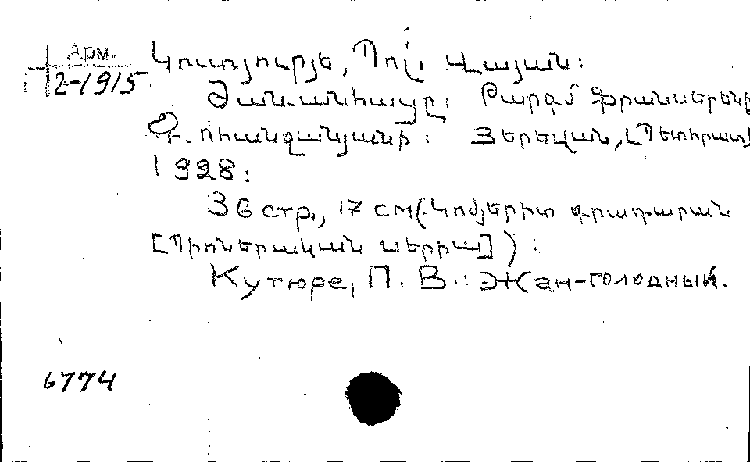 Арм.
2-1915
Կուտյուրյե, Պոլ Վայան:
Ժան-անհացը: Թարգմ ֆրանսերենից
Յերեվան, [Պետհրատ]
1928:
36 стр., 17 см (Կոմյերիտ գրադարան
[Պիոներական սերիա]):
Кутюре, П. В.: Жан-голодный.
6774